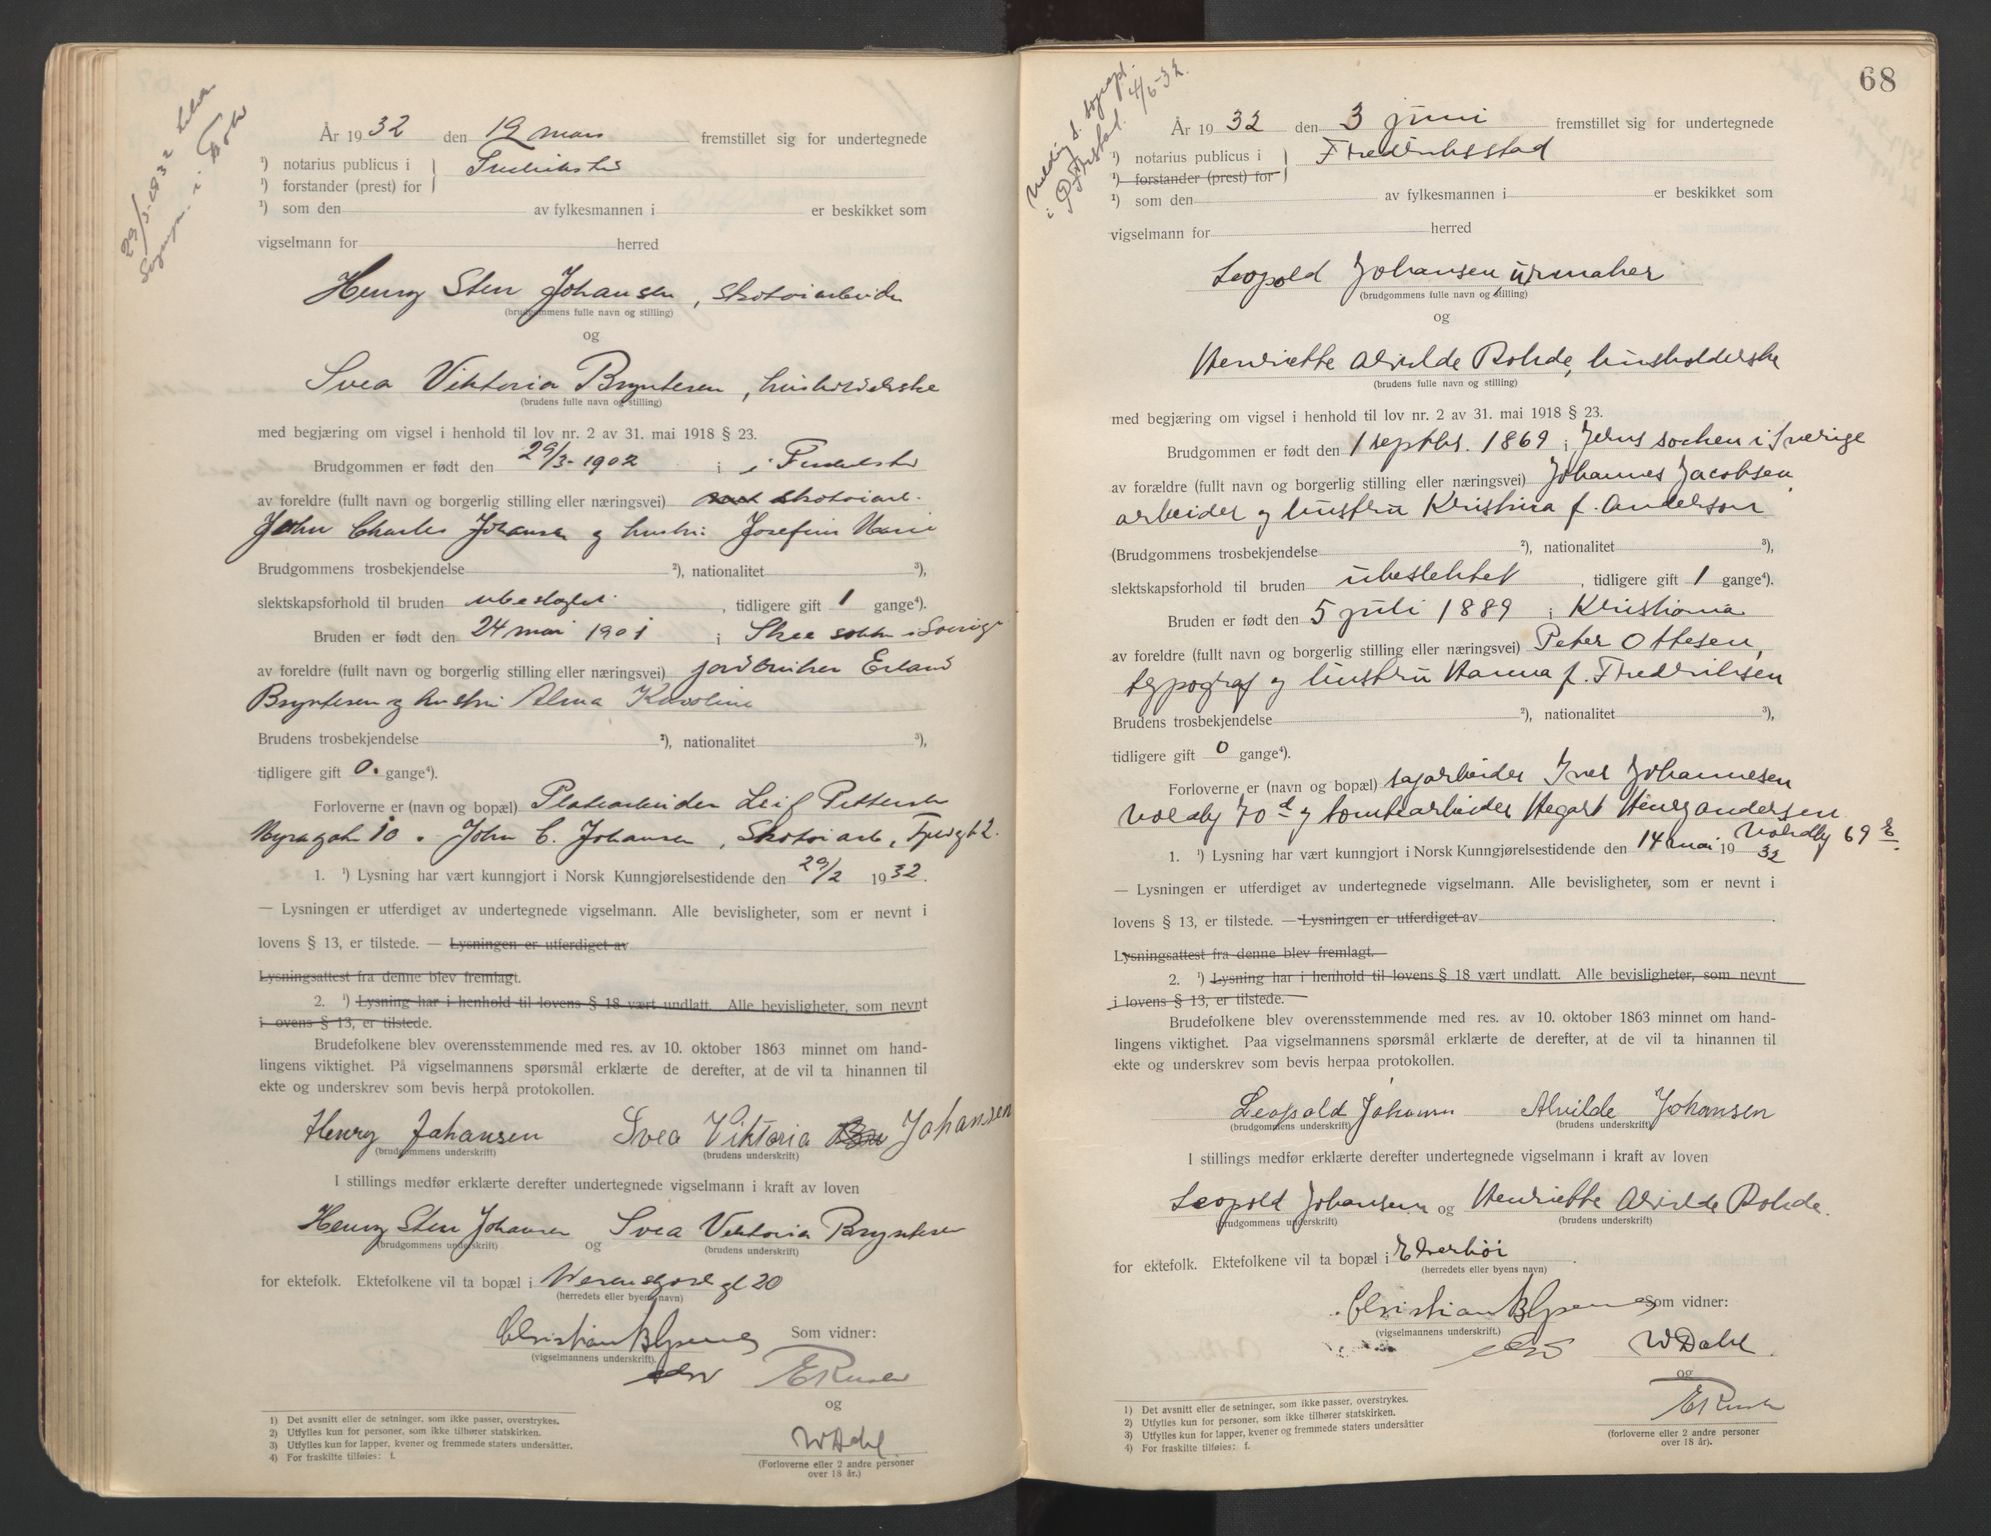 29/3-1932
År 1932 den 12 mars fremstillet sig for undertegnede
¹) notarius publicus i
¹) forstander (prest) for
¹) som den av fylkesmannen i er beskikket som
vigselmann for herred
Henry Sten Johansen, skotøiarbeider
(brudgommens fulle navn og stilling)
og
Svea Viktoria Bryntesen, husholderske
(brudens fulle navn og stilling)
med begjæring om vigsel i henhold til lov nr. 2 av 31. mai 1918 § 23.
Brudgommen er født den 29/3-1902 i
av foreldre (fullt navn og borgerlig stilling eller næringsvei) skotøiarb.
John Charles Johansen og hustru Josefine Marie
Brudgommens trosbekjendelse ²), nationalitet ³),
slektskapsforhold til bruden, tidligere gift 1 gange⁴).
Bruden er født den 24 mai 1901 i Skee sokn i Sverige
av foreldre (fullt navn og borgerlig stilling eller næringsvei) jordbruker Erland
Bryntesen og hustru Alma Karoline
Brudens trosbekjendelse ²), nationalitet ³),
tidligere gift 0. gange⁴).
Forloverne er (navn og bopæl) Platearbeider Leif Pettersen
Myragaten 10. John C. Johansen, Skotøiarb,
1. ¹) Lysning har vært kunngjort i Norsk Kunngjørelsestidende den 29/2 1932.
— Lysningen er utferdiget av undertegnede vigselmann. Alle bevisligheter, som er nevnt i
lovens § 13, er tilstede. — Lysningen er utferdiget av
Lysningsattest fra denne blev fremlagt.
2. ¹) Lysning har i henhold til lovens § 18 vært undlatt. Alle bevisligheter, som nevnt
i ovens § 13, er tilstede.
Brudefolkene blev overensstemmende med res. av 10. oktober 1863 minnet om hand-
lingens viktighet. På vigselmannens spørsmål erklærte de derefter, at de vil ta hinannen til
ekte og underskrev som bevis herpå protokollen.
Henry Johansen Svea Viktoria Johansen
(brudgommens underskrift) (brudens underskrift)
I stillings medfør erklærte derefter undertegnede vigselmann i kraft av loven
Henry Sten Johansen og Svea Viktoria Bryntesen
(brudgommens underskrift) (brudens underskrift)
for ektefolk. Ektefolkene vil ta bopæl i 20
(herredets eller byens navn)
Som vidner:
(vigselmannens underskrift).
og
W Dahl
(Forloverne eller 2 andre personer
over 18 år.)
1) Det avsnitt eller de setninger, som ikke passer, overstrykes.
2) Utfylles kun for personer, som ikke tilhører statskirken.
3) Utfylles kun for lapper, kvener og fremmede staters undersåtter.
4) For fraskilte tilføies: f.
68
4/6-32.
År 1932 den 3 juni fremstillet sig for undertegnede
¹) notarius publicus i Fredriksstad
¹) forstander (prest) for
¹) som den av fylkesmannen i er beskikket som
vigselmann for herred
Leopold Johansen, urmaker
(brudgommens fulle navn og stilling)
og
Henriette Alvilde Rohde, husholderske
(brudens fulle navn og stilling)
med begjæring om vigsel i henhold til lov nr. 2 av 31. mai 1918 § 23.
Brudgommen er født den 1 septbr. 1869 i Jerns socken i Sverige
av forældre (fullt navn og borgerlig stilling eller næringsvei) Johannes Jacobsen,
arbeider og hustru Kristina f. Anderson
(Brudgommens trosbekjendelse ²), nationalitet ³),
slektskapsforhold til bruden ubeslektet, tidligere gift 1 gange⁴).
Bruden er født den 5 juli 1889 i Kristiania
av foreldre (fullt navn og borgerlig stilling eller næringsvei) Peter Ottesen,
typograf og hustru Hanna f. Fredriksen
Brudens trosbekjendelse ²), nationalitet ³),
tidligere gift 0 gange⁴).
Forloverne er (navn og bopæl) sagarbeider Iver Johannesen
og tomtearbeider Hegart Henry Andersen
69
1. ¹) Lysning har vært kunngjort i Norsk Kunngjørelsestidende den 14 mai 1932
— Lysningen er utferdiget av undertegnede vigselmann. Alle bevisligheter, som er nevnt i
lovens § 13, er tilstede. — Lysningen er utferdiget av .
Lysningsattest fra denne blev fremlagt.
2. ¹) Lysning har i henhold til lovens § 18 vært undlatt. Alle bevisligheter, som nevnt
i lovens § 13, er tilstede.
Brudefolkene blev overensstemmende med res. av 10. oktober 1863 minnet om hand-
lingens viktighet. Paa vigselmannens spørsmål erklærte de derefter, at de vil ta hinannen til
ekte og underskrev som bevis herpaa protokollen.
Leopold Johansen Alvilde Johansen
(brudgommens underskrift) (brudens underskrift)
I stillings medfør erklærte derefter undertegnede vigselmann i kraft av loven
Leopold Johansen og Henriette Alvilde Rohde.
(brudgommens underskrift) (brudens underskrift)
for ektefolk. Ektefolkene vil ta bopæl i
(herredets eller byens navn)
Som vidner:
(vigselmannens underskrift.)
W Dahl
og
(forloverne eller 2 andre personer
over 18 år).
1) Det avsnitt eller de setninger, som ikke passer, overstrykes.
2) Utfylles kun for personer, som ikke tilhører statskirken.
3) Utfylles kun for lapper, kvener og fremmede staters undersåtter
4) For fraskilte tilføies: f.